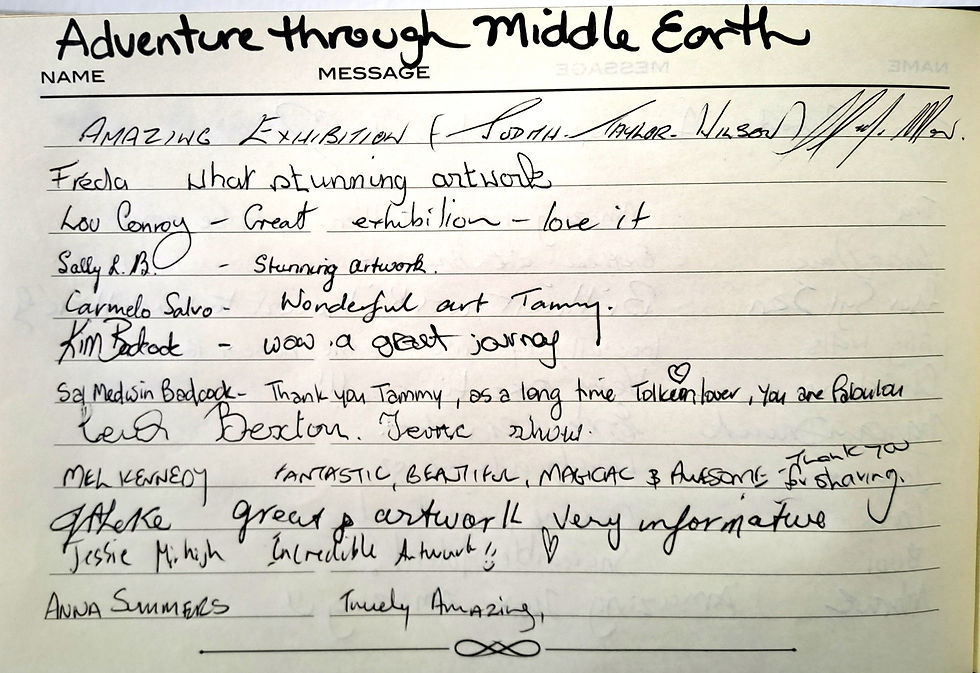 Adventure through Middle Earth
NAME MESSAGE
AMAZING EXHIBITION (JUDITH. TAYLOR. WILSON)
Freda what stunning artwork
Lou Conroy - Great exhibition - love it
Sally L.B. - Stunning artwork.
Carmelo Salvo - Wonderful art Tammy.
Kim Badcock - wow a great journey
Sal Medwin Badcock - Thank you Tammy, as a long time Tolkien lover, you are fabulou
Bexton. show.
MEL KENNEDY FANTASTIC, BEAUTIFUL, MAGICAL & AWESOME - Thank you
for sharing.
great artwork very informative
Jessie Incredible Artwork!!
ANNA SUMMERS Truely Amazing,